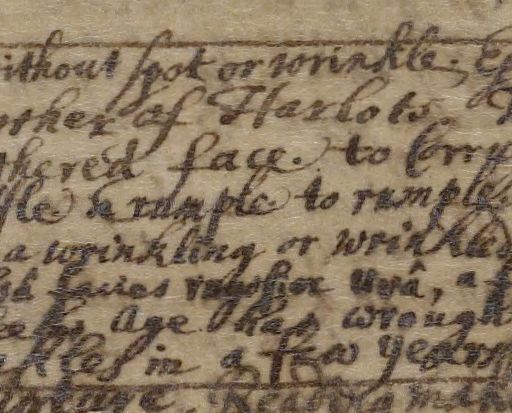 ithout spot or wrinkle. Ep
other of Harlots.
thered face. to Corru
fle & rumple to rumple
a wrinkling or wrinkles
faces uvâ, a
Age has wrough
kles in a few years